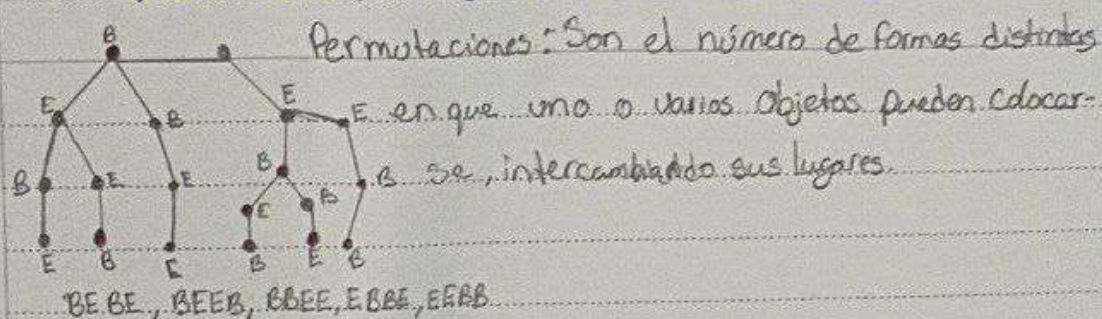 B
Permutaciones: Son el número de formas distintas
E B E E en que uno o varios objetos pueden colocar-
B E E B B se, intercambiando sus lugares.
E B
E B E B E B
BEBE, BEEB, BBEE, EBBE, EEBB